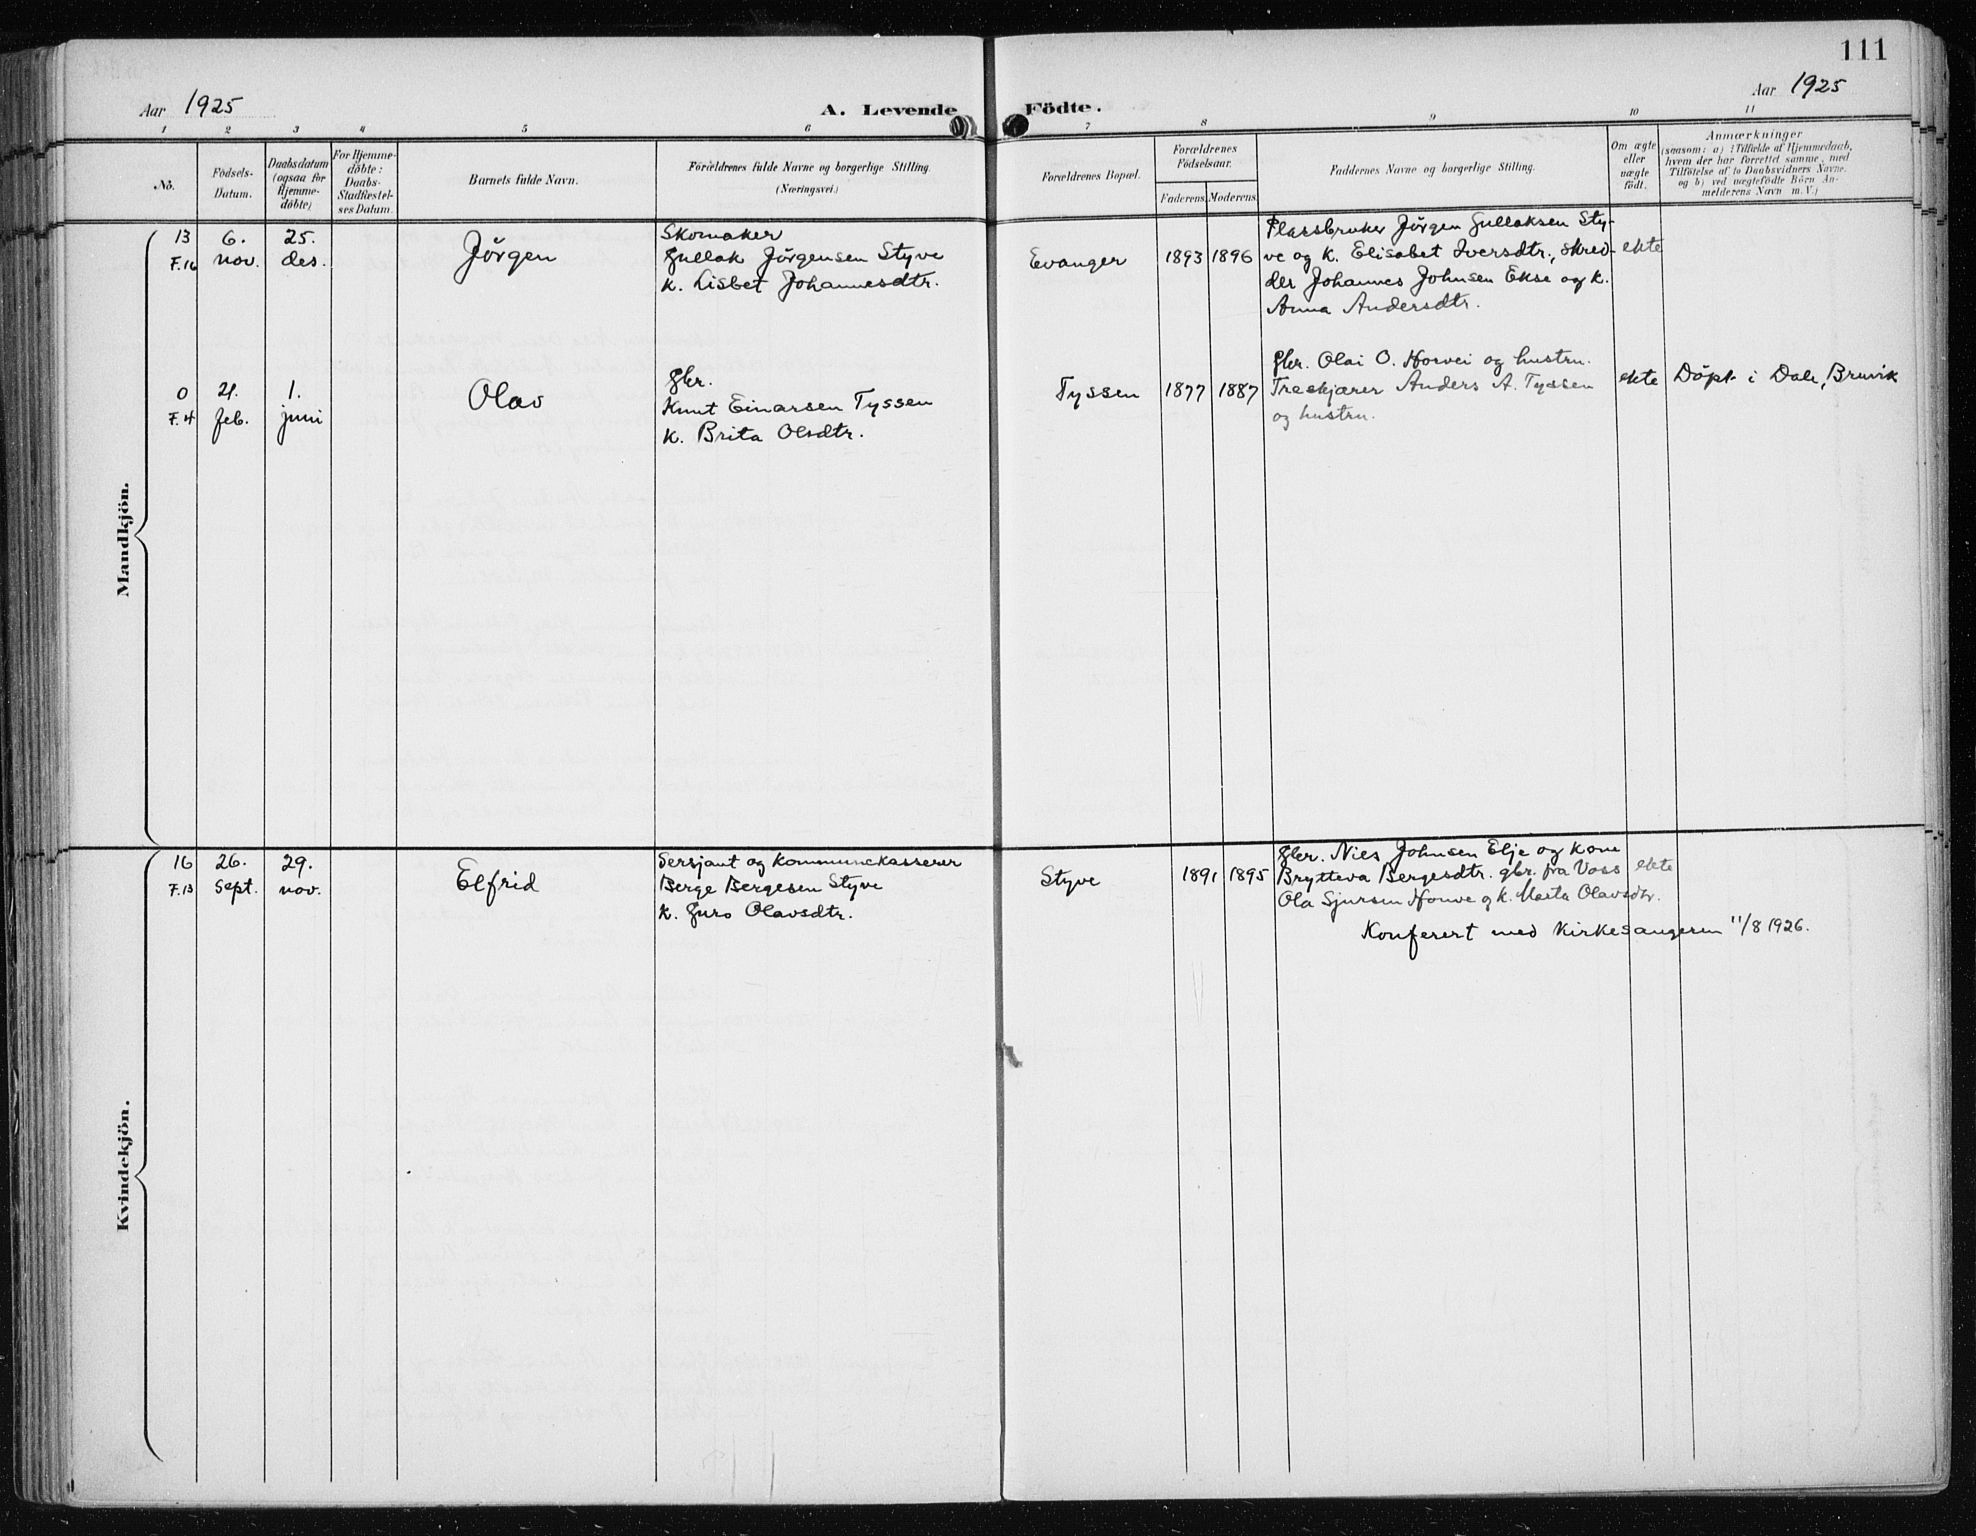 111
Aar 1925
A. Levende Födte.
Aar 1925
1 2 3 4 5 6 7 8 9 10 11
No.
Födsels-
Datum.
Daabsdatum
(ogsaa for
Hjemme-
döbte)
For Hjemme-
döbte:
Daabs-
Stadfæstel-
ses Datum.
Barnets fulde Navn.
Forældrenes fulde Navne og borgerlige Stilling.
(Næringsvei.)
Forældrenes Bopæl.
Forældrenes
Födselsaar.
Faderens. Moderens.
Faddernes Navne og borgerlige Stilling.
Om ægte
eller
uægte
født.
Anmærkninger
(saasom: a) i Tilfælde af Hjemmedaab,
hvem der har forrettet samme, med
Tilföielse af to Daabsvidners Navne.
og b) ved uægtefödte Börn An-
melderens Navn m. V.)
Mandkjön.
13
F.16
6.
nov.
25.
des.
Jörgen
Skomaker
Gullak Jörgensen Styve
k. Lisbet Johannesdtr.
Evanger
1893 1896
Plassbruker Jörgen Gullaksen Sty-
ve og k. Elisabet Iversdtr., skred-
der Johannes Johnsen Ekse og k.
Anna Andersdtr.
ekte
0
F.4
21.
feb.
1.
juni
Olav
gbr.
Knut Einarsen Tyssen
k. Brita Olsdtr.
Tyssen
1877 1887
gbr. Olai O. Horvei og hustru.
Treskjærer Anders A. Tyssen
og hustru.
ekte
Döpt i Dale, Bruvik
Kvindekjön.
16
F.13
26.
Sept.
29.
nov.
Elfrid
Sersjant og kommunekasserer
Berge Bergesen Styve
k. Guro Olavsdtr.
Styve
1891 1895
gbr. Nils Johnsen Elje og kone
Brytteva Bergesdtr. gbr. fra Voss
Ola Sjursen og k. Marta Olavsdtr.
ekte
Konferert med kirkesangeren 11/8 1926.